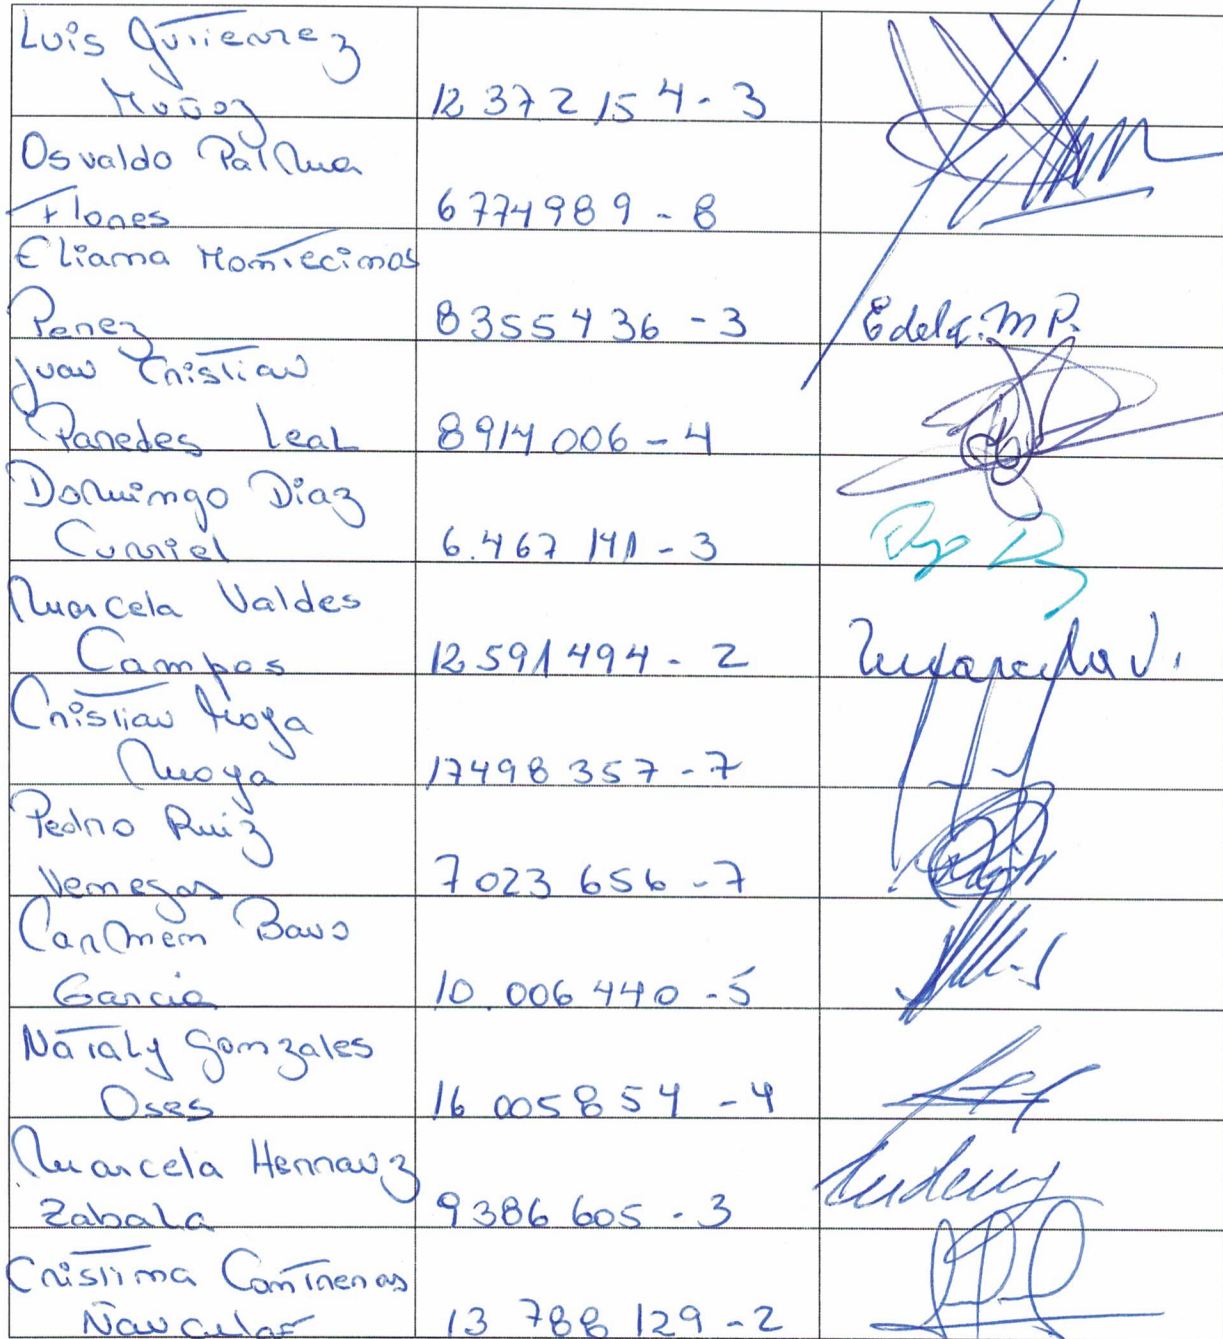 Luis Gutierrez
Muñoz 12 372 154 - 3
Osvaldo Palma
Flores 6774989 - 8
Eliana Montecinos
Perez 8355436 - 3 Edela. M P.
Juan Cristian
Paredes Leal 8914 006 - 4
Domingo Diaz
Curriel 6.467 141 - 3
Marcela Valdes
Campos 12 591 494 - 2 Marcela V.
Cristian Moya
Moya 17498 357 - 7
Pedro Ruiz
Venegas 7 023 656 - 7
Carmen Bavo
Garcia 10 006 440 - 5
Nataly Gonzales
Oses 16 005 854 - 4
Marcela Hernauz
Zabala 9386 605 - 3
Cristina Contreras
13 788 129 - 2